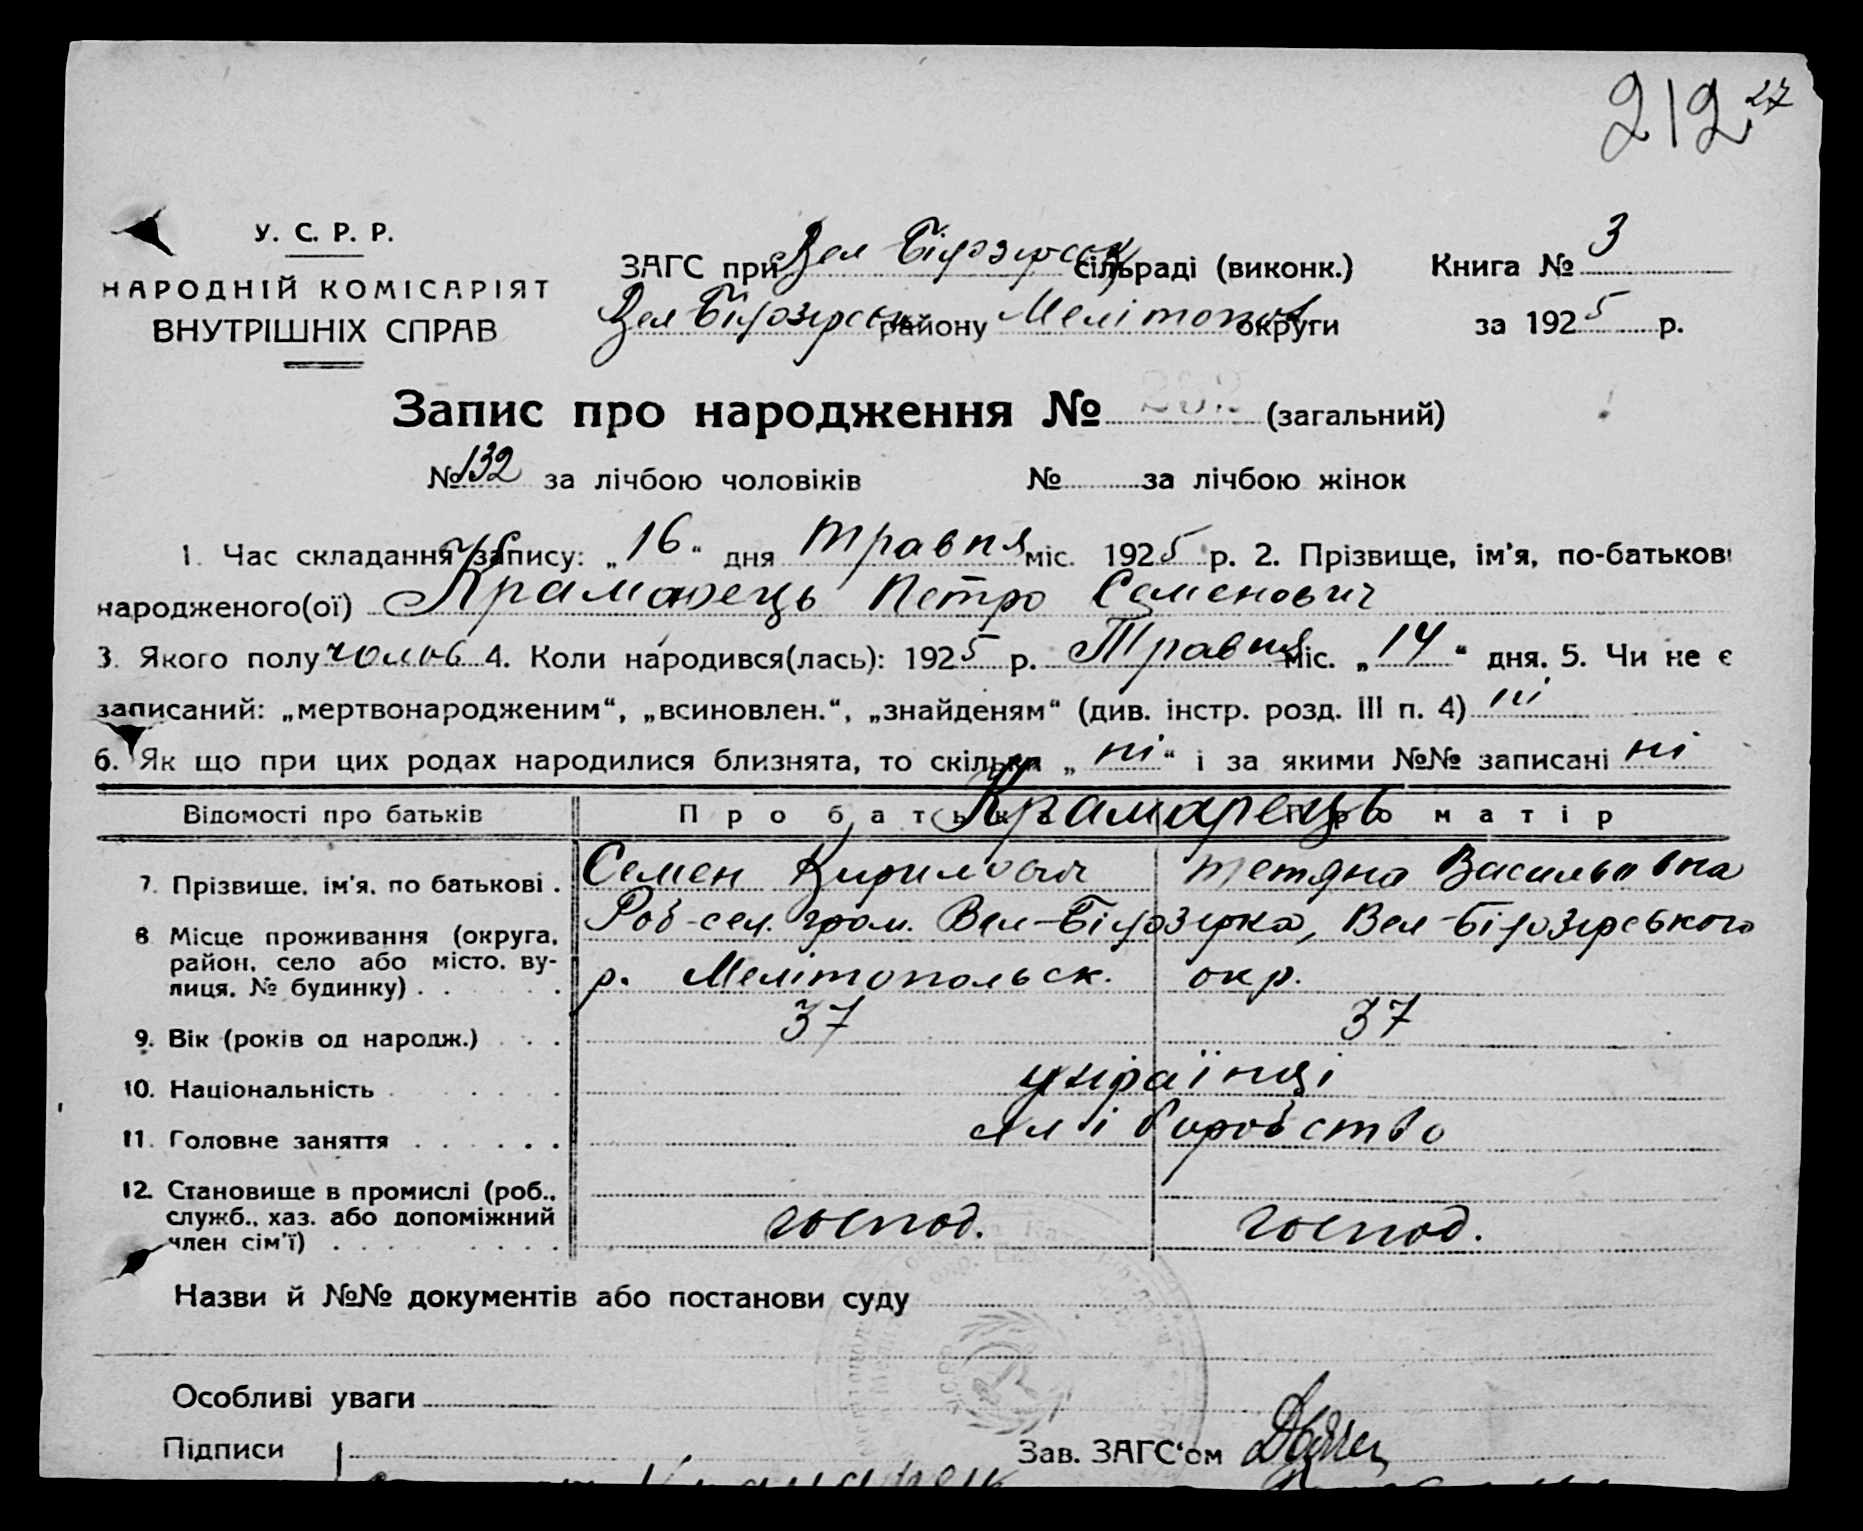 212 27
У. С. Р. Р.
НАРОДНІЙ КОМІСАРІЯТ
ВНУТРІШНІХ СПРАВ
ЗАГС при Вел Білозирськ сільраді (виконк.) Книга № 3
Вел Білозирськ району Мелітопол округи за 1925 р.
Запис про народження № 232 (загальний)
№ 132 за лічбою чоловіків № за лічбою жінок
1. Час складання запису: „16“ дня Травня міс. 1925 р. 2. Прізвище, ім'я, по-батькові
народженого(ої) Крамарець Петро Семенович
3. Якого полу чолов 4. Коли народився(лась): 1925 р. Травня міс. „14“ дня. 5. Чи не є
записаний: „мертвонародженим“, „всиновлен.“, „знайденям“ (див. інстр. розд. III п. 4) ні
6. Як що при цих родах народилися близнята, то скільки „ні“ і за якими №№ записані ні
Відомості про батьків Про батька Про матір
Крамарець
7. Прізвище, ім'я, по батькові . Семен Кирилович Тетяна Васильовна
8. Місце проживання (округа, район, село або місто, вулиця, № будинку) . . . Роб-сел. гром. Вел-Білозирка, Вел-Білозирського
р. Мелітопольск. окр.
9. Вік (років од народж.) . . . 37 37
10. Національність . . . українці
11. Головне заняття . . . . . . хліборобство
12. Становище в промислі (роб., служб., хаз. або допоміжний член сім'ї) . . . господ. господ.
Назви й №№ документів або постанови суду
Особливі уваги
Підписи Зав. ЗАГС'ом